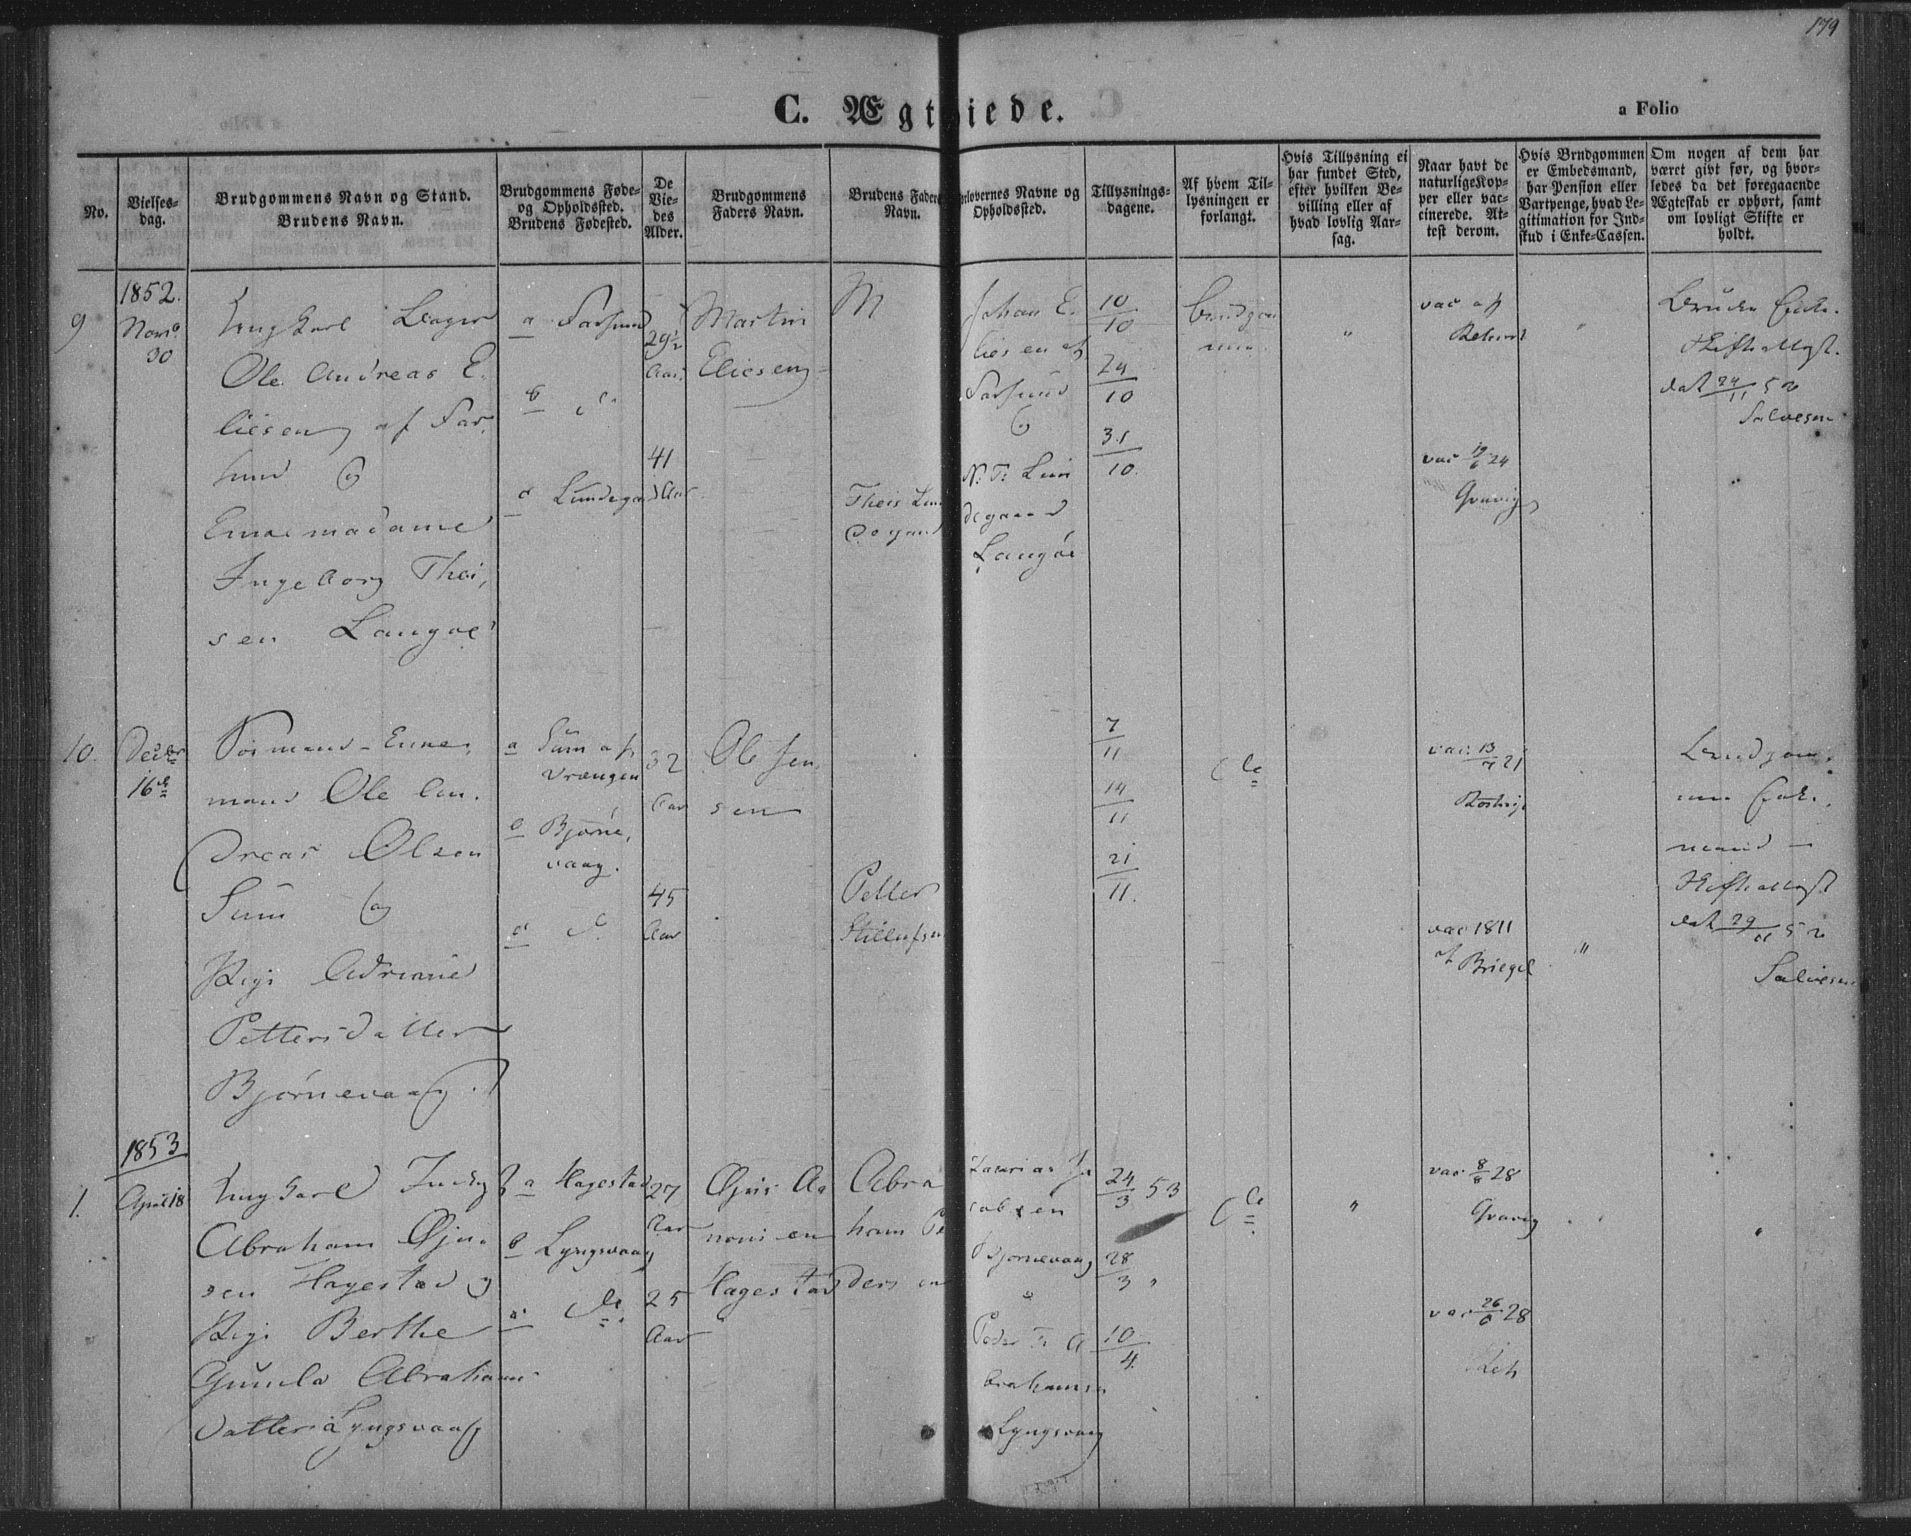 179
C. Ægtviede.
a Folio
No.
Vielses-
dag.
Brudgommens Navn og Stand.
Brudens Navn.
Brudgommens Føde-
og Opholdssted.
Brudens Fødested.
De
Vie-
des
Alder.
Brudgommens
Faders Navn.
Brudens Faders
Navn.
Forlovernes Navne og
Opholdssted.
Tillysnings-
dagene.
Af hvem Til-
lysningen er
forlangt.
Hvis Tillysning ei
har fundet Sted,
efter hvilken Be-
villing eller af
hvad lovlig Aar-
sag.
Naar havt de
naturlige Kop-
per eller vac-
cinerede. At-
test derom.
Hvis Brudgommen
er Embedsmand,
har Pension eller
Vartpenge, hvad Le-
gitimation for Ind-
skud i Enke-Cassen.
Om nogen af dem har
været givt før, og hvor-
ledes da det foregaaende
Ægteskab er ophørt, samt
om lovligt Skifte er
holdt.
9
1852.
Novbr
30
Ungkarl
Ole Andreas E.
liesen af Far
sund og
Enkemadame
Ingeborg Thei,
sen Langøe
a Farsund
b
d Lundegaard
29½
Aar
41
Aar
Martin
Eliesen
Theis Lun
degaard
Johan E.
liesen af
Farsund
og
N. T. Lun
degaard
Langøe
10/10
24/10
31/10.
Brudgom
men
"
vac af
vac 19/6 24
Gravig
"
Bruden Enke.
Skifteattest.
dat 24/11 52
Salvesen
10.
Decbr
16de
Sømand - Enke,
mand Ole An.
dreas Olsen
Sum og
Pige Adriane
Pettersdatter
Bjørnevaag.
a Sum af
Vrængen
b Bjørne,
vaag.
32
Aar
45
Aar
Ole Jen
sen
Petter
7/11
14/11
21/11.
vac 13/7 21
vac 1811
af Briegel
"
Brudgom,
men Enke,
mand
Skifteattest
dat 29/11 52
Salvesen
1.
1853
April 18
Ungkarl
Abraham Øju.
sen Hagestad og
Pige Berthe
Gunila Abrahams
datter Lyngsvaag
a Hagestad
b Lyngsvaag
27
Aar
25
Aar
Hagestad
Abra
ham Pe
dersen
cobsen
Bjørnevaag
brahamsen
Lyngsvaag
24/3 53
28/3 "
10/4.
"
vac 8/8 28
Gravig
vac 26/6 28
"